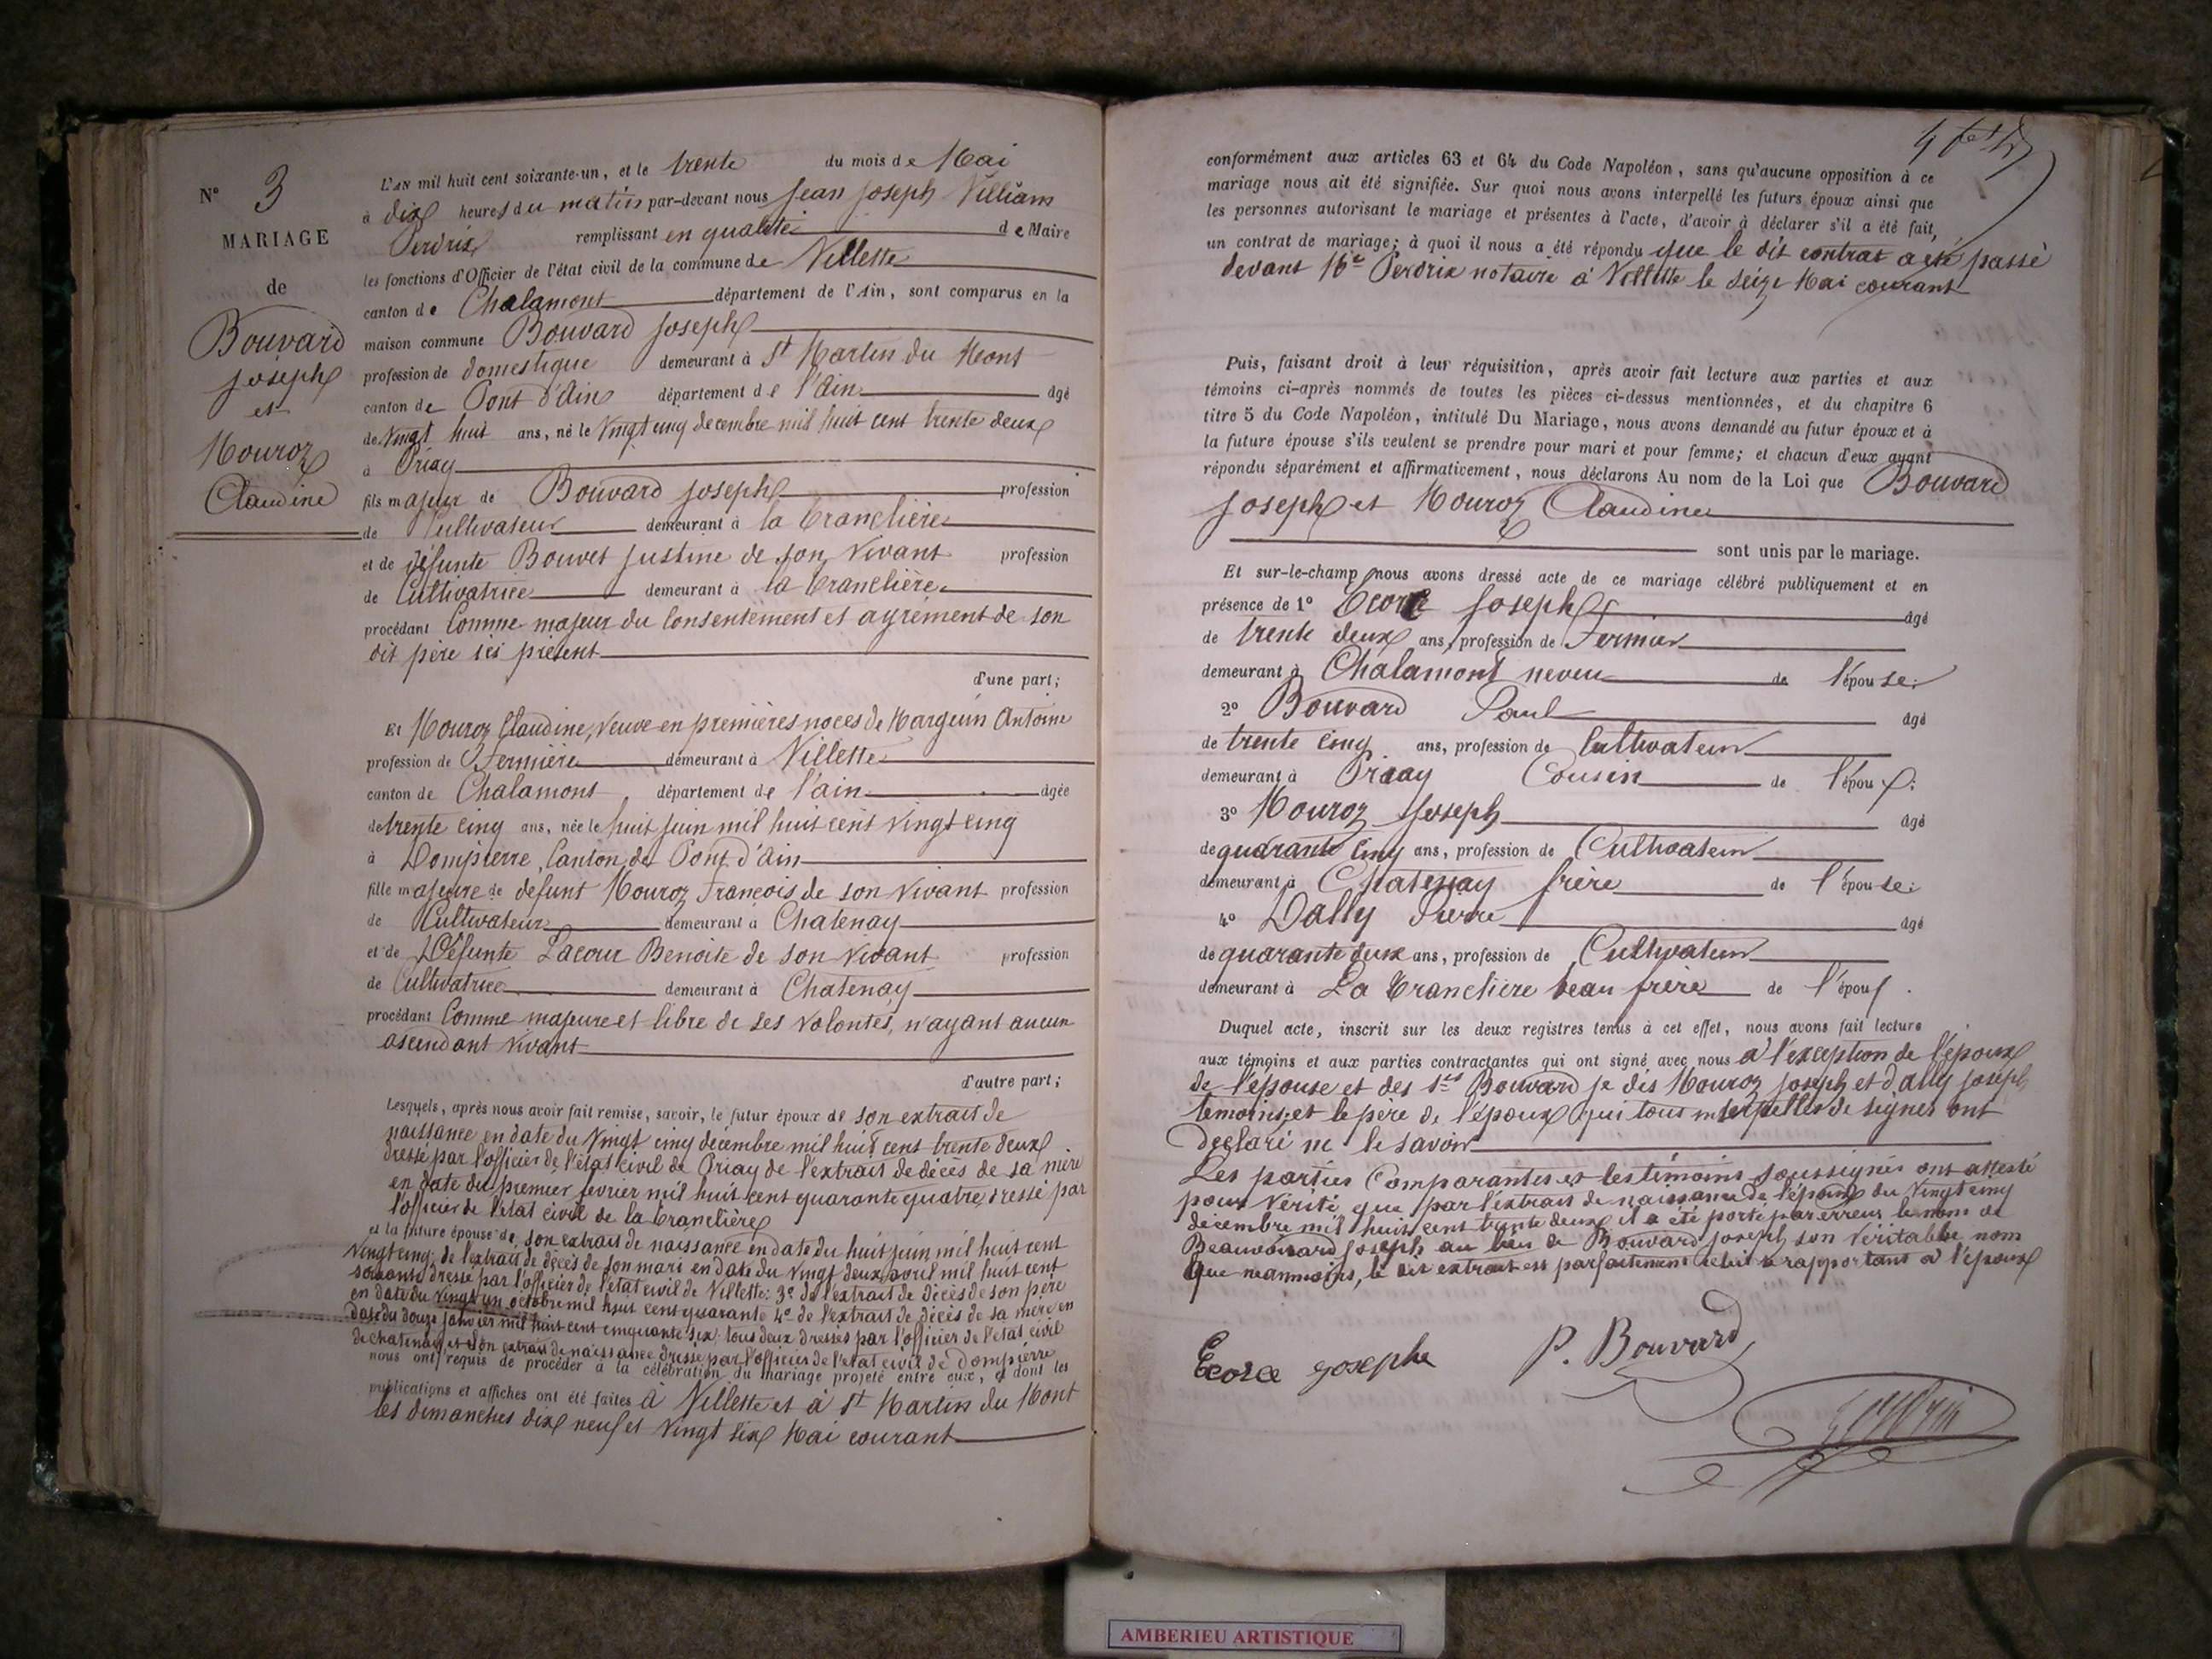 N° 3
MARIAGE
de
Bouvard
Joseph
et
Mouroz
Claudine
L'AN mil huit cent soixante-un, et le trente du mois de Mai
à dix heures du matin par-devant nous Jean Joseph William
Perdrix remplissant en qualité de Maire
les fonctions d'Officier de l'état civil de la commune de Villette
canton de Chalamont département de l'Ain, sont comparus en la
maison commune Bouvard Joseph
profession de domestique demeurant à St Martin du Mont
canton de Pont d'Ain département de l'Ain âgé
de Vingt huit ans, né le Vingt cinq décembre mil huit cent trente deux
à Priay
fils majeur de Bouvard Joseph profession
de Cultivateur demeurant à la Tranclière
et de défunte Bouvet Justine de son vivant profession
de Cultivatrice demeurant à la Tranclière
procédant Comme majeur du Consentement et agrément de son
dit père ici présent
d'une part;
Et Mouroz Claudine, Veuve en premières noces de Margeun Antoine
profession de Fermière demeurant à Villette
canton de Chalamont, département de l'ain âgée
de trente cinq ans, née le huit juin mil huit cent vingt cinq
à Dompierre, Canton de Pont d'Ain
fille majeure de défunt Mouroz François de son vivant profession
de Cultivateur demeurant à Chatenay
et de Défunte Lacour Benoite de son vivant profession
de Cultivatrice demeurant à Chatenay
procédant Comme majeure et libre de ses volontés, n'ayant aucun
ascendant vivant
d'autre part;
Lesquels, après nous avoir fait remise, savoir, le futur époux de son extrait de
naissance en date du Vingt cinq décembre mil huit cent trente deux
dressé par l'officier de l'état civil de Priay de l'extrait de décès de sa mère
en date du premier février mil huit cent quarante quatre, dressé par
l'officier de l'état civil de la Tranclière
et la future épouse de son extrait de naissance en date du huit juin mil huit cent
Vingt cinq, de l'extrait de décès de son mari en date du Vingt deux avril mil huit cent
soixante dressé par l'officier de l'état civil de Villette: 3° de l'extrait de décès de son père
en date du vingt un octobre mil huit cent quarante 4° de l'extrait de décès de sa mère en
date du douze janvier mil huit cent cinquante six tous deux dressés par l'officier de l'état civil
de chatenay et son extrait de naissance dressé par l'officier de l'état civil de Dompierre
nous ont requis de procéder à la célébration du mariage projeté entre eux, et dont les
publications et affiches ont été faites à Villette et à St Martin du Mont
les dimanches dix neuf et vingt six Mai courant
conformément aux articles 63 et 64 du Code Napoléon, sans qu'aucune opposition à ce
mariage nous ait été signifiée. Sur quoi nous avons interpellé les futurs époux ainsi que
les personnes autorisant le mariage et présentes à l'acte, d'avoir à déclarer s'il a été fait,
un contrat de mariage; à quoi il nous a été répondu que le dit contrat a été passé
devant Me Perdrix notaire à Villette le seize Mai courant
Puis, faisant droit à leur réquisition, après avoir fait lecture aux parties et aux
témoins ci-après nommés de toutes les pièces ci-dessus mentionnées, et du chapitre 6
titre 5 du Code Napoléon, intitulé Du Mariage, nous avons demandé au futur époux et à
la future épouse s'ils veulent se prendre pour mari et pour femme; et chacun d'eux ayant
répondu séparément et affirmativement, nous déclarons Au nom de la Loi que Bouvard
Joseph et Mouroz Claudine
sont unis par le mariage.
Et sur-le-champ nous avons dressé acte de ce mariage célébré publiquement et en
présence de 1° Ecorce Joseph âgé
de trente deux ans, profession de Fermier
demeurant à Chalamont neveu de l'épouse:
2° Bouvard Paul âgé
de trente cinq ans, profession de Cultivateur
demeurant à Priay Cousin de l'époux:
3° Mouroz Joseph âgé
de quarante cinq ans, profession de Cultivateur
demeurant à Chatenay frère de l'épouse:
4° Dally Pierre âgé
de quarante deux ans, profession de Cultivateur
demeurant à La Tranclière beau frère de l'époux.
Duquel acte, inscrit sur les deux registres tenus à cet effet, nous avons fait lecture
aux témoins et aux parties contractantes qui ont signé avec nous à l'exception de l'époux
de l'épouse et des Srs Bouvard je dis Mouroz Joseph et dally joseph
témoins, et le père de l'époux qui tous interpellés de signer ont
déclaré ne le savoir
Les parties Comparantes et les témoins soussignés ont attesté
pour Vérité que par l'extrait de naissance de l'époux du Vingt cinq
décembre mil huit cent trente deux, il a été porté par erreur le nom de
Beauvouard Joseph au lieu de Bouvard Joseph son véritable nom
Que néanmoins, le dit extrait est parfaitement celui se rapportant à l'époux
Ecorce josephe P. Bouvard
AMBERIEU ARTISTIQUE